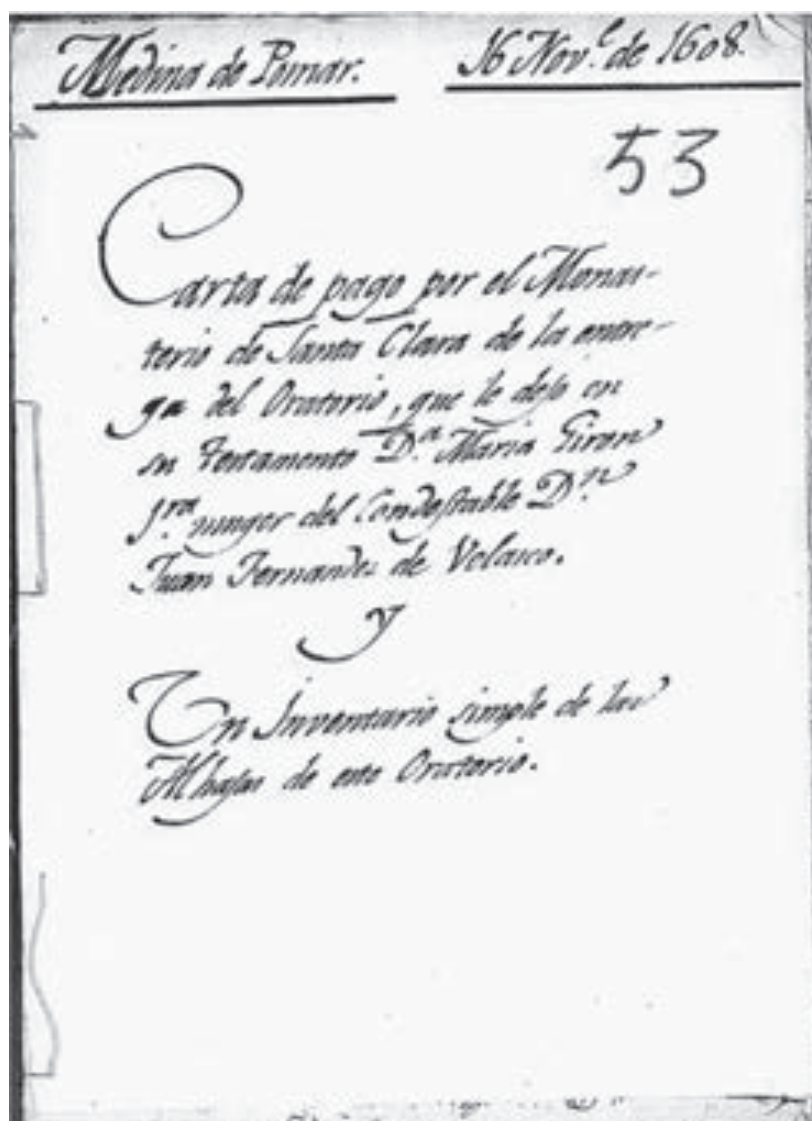 Medina de Pumar. 16 Nov.e de 1608.
53
Carta de pago por el Monas-
terio de Santa Clara de la entre-
ga del Oratorio, que le dejo en
su Testamento D.a Maria Giron
1.ra muger del Condestable D.n
Juan Fernandez de Velasco.
y
Un Inventario simple de las
Alhajas de este Oratorio.